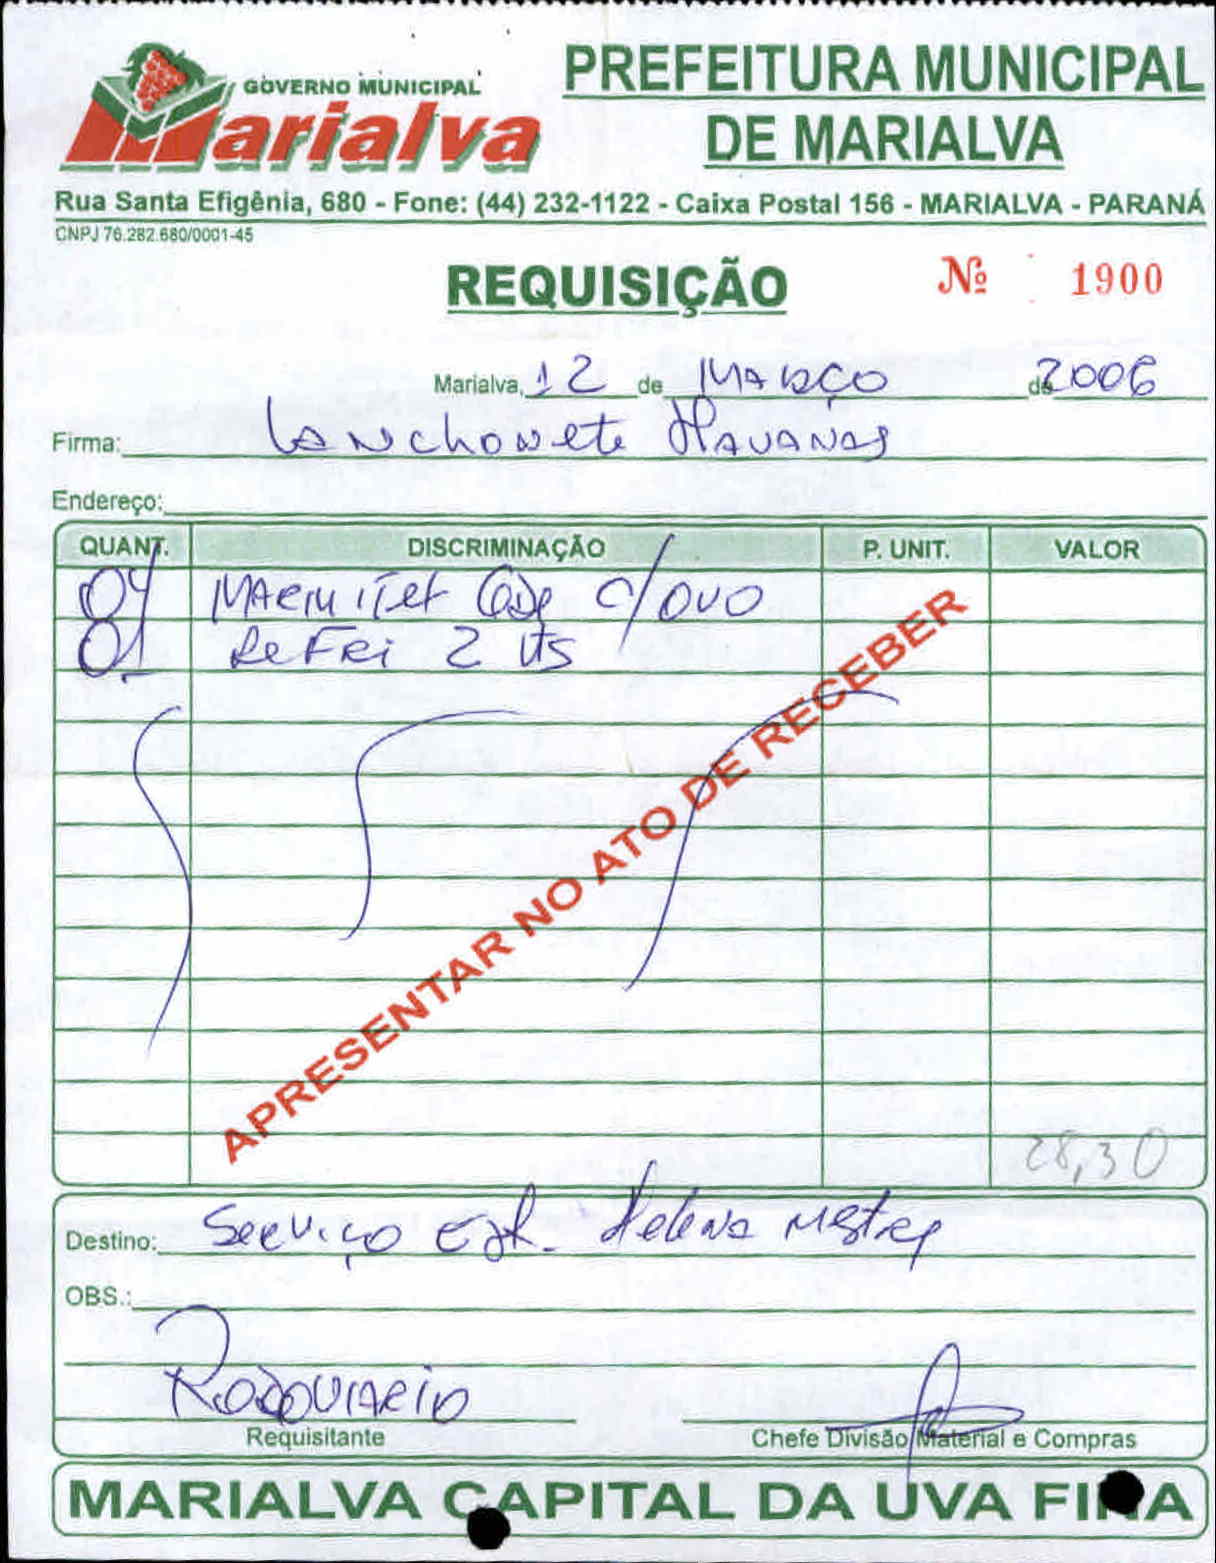 GOVERNO MUNICIPAL
Marialva
PREFEITURA MUNICIPAL
DE MARIALVA
Rua Santa Efigênia, 680 - Fone: (44) 232-1122 - Caixa Postal 156 - MARIALVA - PARANÁ
CNPJ 76.282.680/0001-45
REQUISIÇÃO Nº 1900
Marialva, 12 de MARÇO de 2006
Firma: LANchoNete HAVANAS
Endereço:
QUANT. DISCRIMINAÇÃO P. UNIT. VALOR
04 MARMITEX C/ OVO
01 ReFRi 2 Lts
APRESENTAR NO ATO DE RECEBER
28,30
Destino: Serviço Est. Helena
OBS.:
RODOVIARIO
Requisitante Chefe Divisão Material e Compras
MARIALVA CAPITAL DA UVA FINA